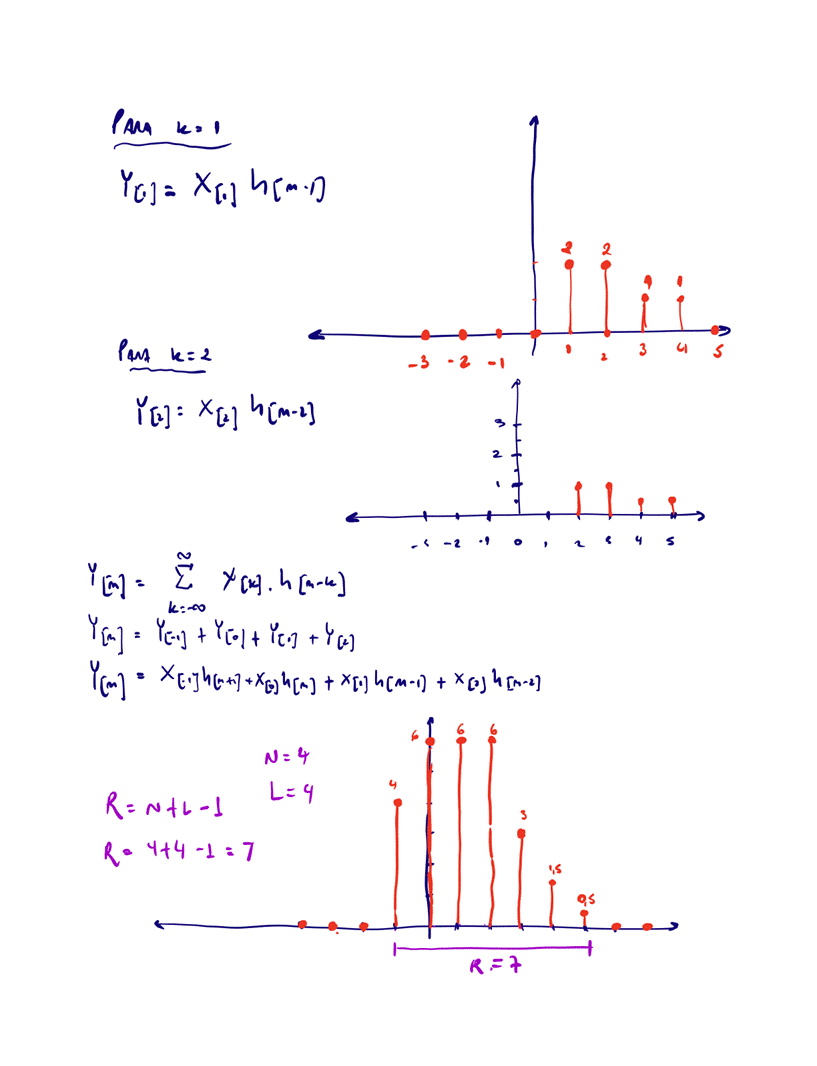 PARA k=1
Y[1] = X[1] h[n-1]
2 2 1 1
-3 -2 -1 1 2 3 4 5
PARA k=2
Y[2] = X[2] h[n-2]
3
2
1
-2 -1 0 1 2 3 4 5
Y[n] = ∞ Σ k=-∞ X[k] . h[n-k]
Y[n] = Y[-1] + Y[0] + Y[1] + Y[2]
Y[n] = X[-1] h[n+1] + X[0] h[n] + X[1] h[n-1] + X[2] h[n-2]
N=4
L=4
R= N+L-1
R= 4+4-1=7
4 6 6 6 3 1,5 0,5
R=7